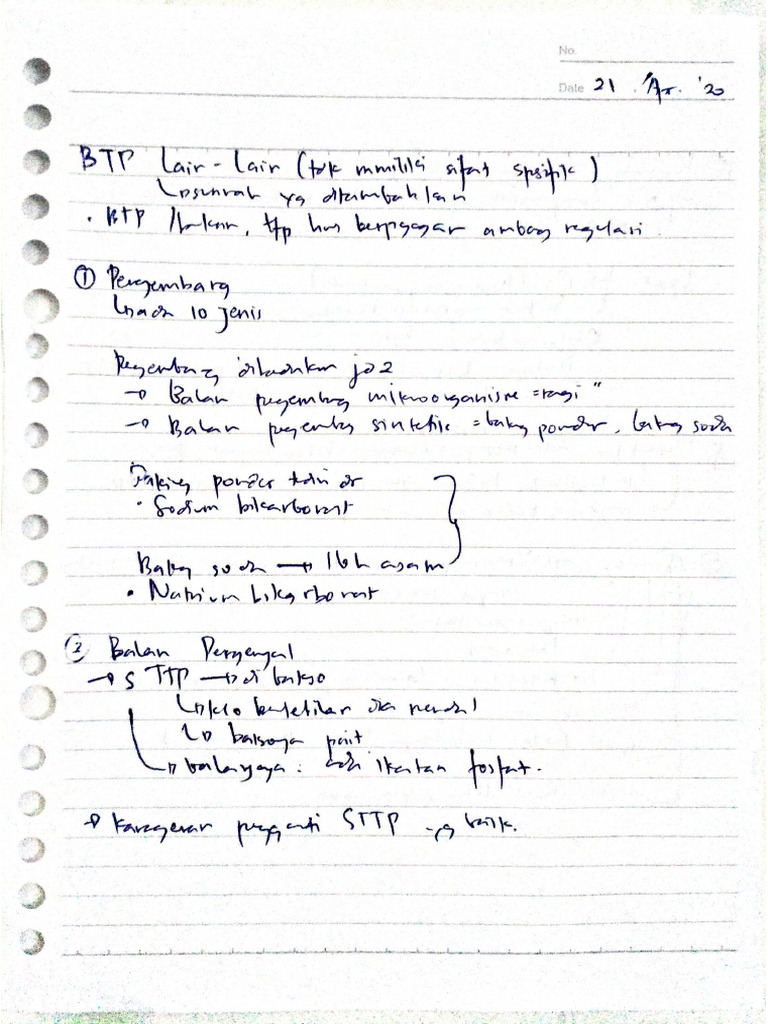 No.
Date 21 Apr. '20
BTP Lain-Lain (tdk memiliki sifat spesifik)
↳ yg ditambahkan
• BTP , ttp hrs ambang regulasi
① Pengembang
↳ ada 10 jenis
Pengembang jd 2
→ Bahan pengembang mikroorganisme = ragi"
→ Bahan pengembang sintetik = baking powder, baking soda
Baking powder tdr dr
• Sodium bikarbonat
Baking soda → lbh asam
• Natrium bikarbonat
② Bahan Pengenyal
→ STTP → di bakso
↳ klo dia
↳ baksonya pait
↳ bahayanya : ada ikatan fosfat.
→ Karagenan pengganti STTP yg baik.